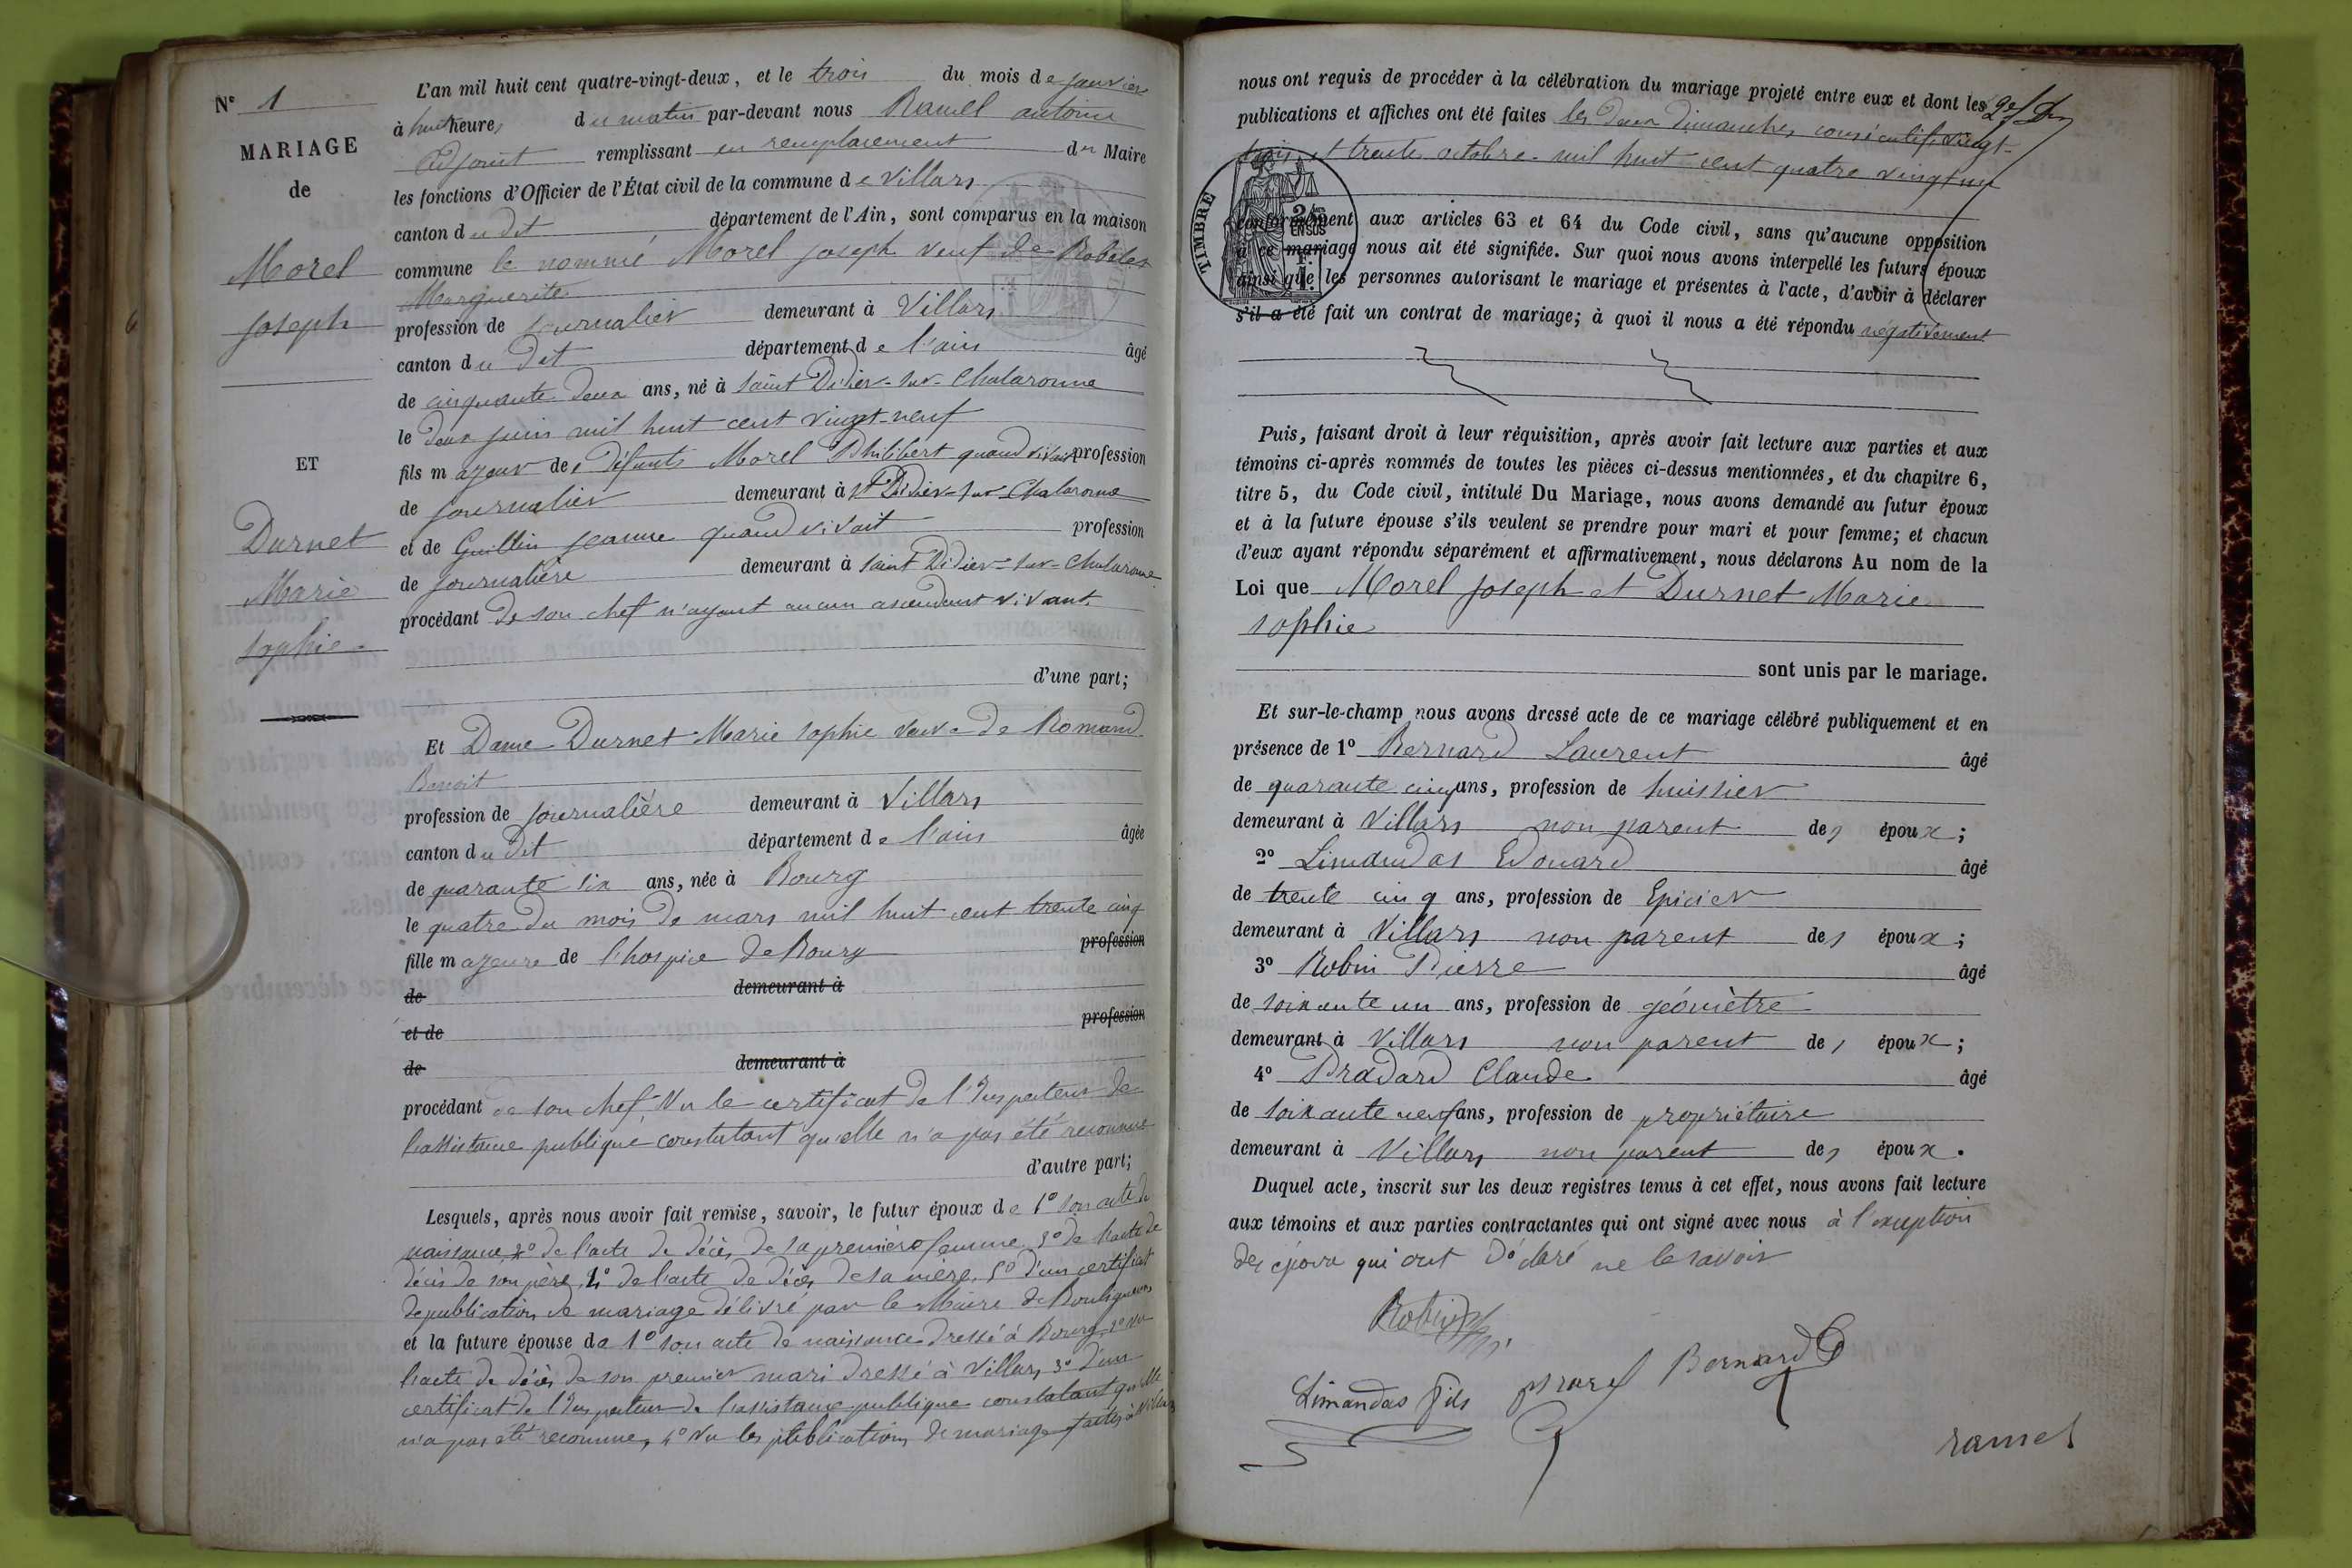 N° 1
MARIAGE
de
Morel
Joseph
ET
Durnet
Marie
Sophie
L'an mil huit cent quatre-vingt-deux, et le trois du mois de janvier
à huit heures du matin par-devant nous Ramel antoine
adjoint remplissant en remplacement du Maire
les fonctions d'Officier de l'État civil de la commune de Villars
canton du dit département de l'Ain, sont comparus en la maison
commune le nommé Morel Joseph veuf de
Marguerite
profession de journalier demeurant à Villars
canton du dit département de l'ain âgé
de cinquante deux ans, né à saint Didier-sur-Chalaronne
le deux juin mil huit cent vingt-neuf
fils majeur des défunts Morel Philibert quand vivait profession
de journalier demeurant à St Didier-sur-Chalaronne
et de Guillin jeanne quand vivait profession
de journalière demeurant à saint Didier-sur-Chalaronne
procédant de son chef n'ayant aucun ascendant vivant.
d'une part;
Et Dame Durnet Marie sophie veuve de Romand
Benoit
profession de journalière demeurant à Villars
canton du dit département de l'ain âgée
de quarante six ans, née à Bourg
le quatre du mois de mars mil huit cent trente cinq
fille majeure de l'hospice de Bourg profession
de demeurant à
et de profession
de demeurant à
procédant de son chef Vu le certificat de l'Inspecteur de
l'assistance publique constatant qu'elle n'a pas été reconnue
d'autre part;
Lesquels, après nous avoir fait remise, savoir, le futur époux de 1° son acte de
naissance 2° de l'acte de décès de sa première femme 3° de l'acte de
décès de son père, 4° de l'acte de décès de sa mère, 5° d'un certificat
de publication de mariage délivré par le Maire de Bouligneux
et la future épouse de 1° son acte de naissance dressé à Bourg 2° de
l'acte de décès de son premier mari dressé à Villars 3° d'un
certificat de l'Inspecteur de l'assistance publique constatant qu'elle
n'a pas été reconnue, 4° Vu les publications de mariage faites à Villars
nous ont requis de procéder à la célébration du mariage projeté entre eux et dont les
publications et affiches ont été faites les deux dimanches consécutifs vingt-
trois et trente octobre mil huit cent quatre vingt un
TIMBRE
2/10 EN SUS
conformément aux articles 63 et 64 du Code civil, sans qu'aucune opposition
à ce mariage nous ait été signifiée. Sur quoi nous avons interpellé les futurs époux
ainsi que les personnes autorisant le mariage et présentes à l'acte, d'avoir à déclarer
s'il a été fait un contrat de mariage; à quoi il nous a été répondu négativement
Puis, faisant droit à leur réquisition, après avoir fait lecture aux parties et aux
témoins ci-après nommés de toutes les pièces ci-dessus mentionnées, et du chapitre 6,
titre 5, du Code civil, intitulé Du Mariage, nous avons demandé au futur époux
et à la future épouse s'ils veulent se prendre pour mari et pour femme; et chacun
d'eux ayant répondu séparément et affirmativement, nous déclarons Au nom de la
Loi que Morel Joseph et Durnet Marie
sophie
sont unis par le mariage.
Et sur-le-champ nous avons dressé acte de ce mariage célébré publiquement et en
présence de 1° Bernard Laurent âgé
de quarante cinq ans, profession de huissier
demeurant à Villars non parent des époux;
2° Limandas Edouard âgé
de trente cinq ans, profession de Epicier
demeurant à Villars non parent des époux;
3° Robin Pierre âgé
de soixante un ans, profession de géomètre
demeurant à Villars non parent des époux;
4° Pradard Claude âgé
de soixante neuf ans, profession de propriétaire
demeurant à Villars non parent des époux.
Duquel acte, inscrit sur les deux registres tenus à cet effet, nous avons fait lecture
aux témoins et aux parties contractantes qui ont signé avec nous à l'exception
des époux qui ont déclaré ne le savoir
Robin
Limandas fils Bernard
ramel